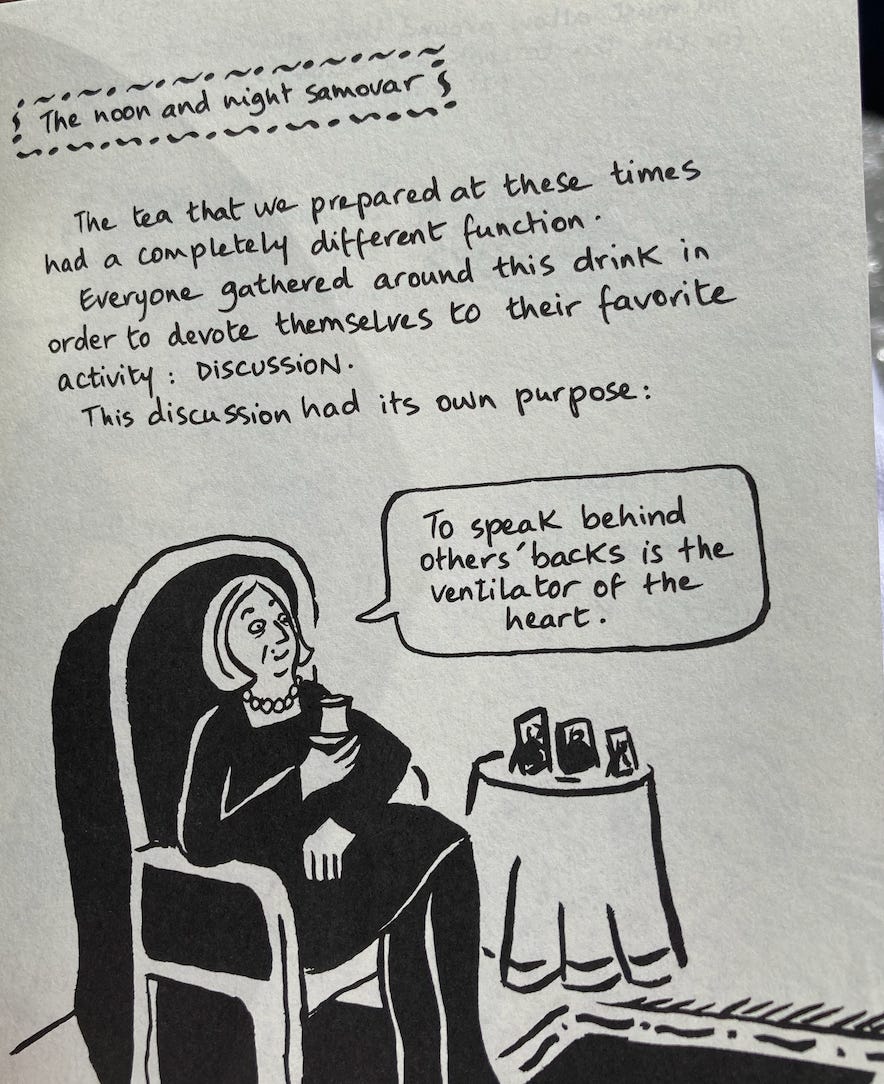 The noon and night samovar
The tea that we prepared at these times
had a completely different function.
Everyone gathered around this drink in
order to devote themselves to their favorite
activity: DISCUSSION.
This discussion had its own purpose:
To speak behind
others' backs is the
ventilator of the
heart.